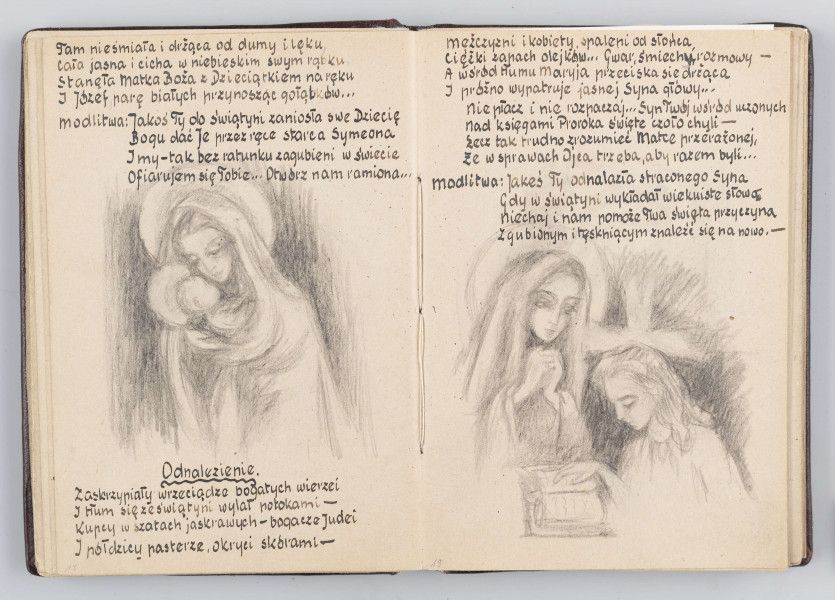 Tam nieśmiała i drżąca od dumy i lęku
Cała jasna i cicha w niebieskim swym rąbku
Stanęła Matka Boża z Dzieciątkiem na ręku
I Józef parę białych przynosząc gołąbków...
Modlitwa: Jakoś Ty do świątyni zaniosła swe Dziecię
Bogu dać Je przez ręce starca Symeona
I my-tak bez ratunku zagubieni w świecie
Ofiarujem się Tobie... Otwórz nam ramiona...
Odnalezienie.
Zaskrzypiały wrzeciądze bogatych wierzei
I tłum się ze świątyni wylał potokami —
Kupcy w szatach jaskrawych – bogacze Judei
I półdzicy pasterze, okryci skórami —
Mężczyzni i kobiety, spaleni od słońca
Ciężki zapach olejków... Gwar, śmiechy, rozmowy —
A wśród tłumu Maryja przeciska się drżąca
I próżno wypatruje jasnej Syna głowy...
Nie płacz i nie rozpaczaj... Syn Twój wśród uczonych
Nad księgami Proroka święte czoło chyli —
Lecz tak trudno zrozumieć Matce przerażonej,
Że w sprawach Ojca trzeba, aby razem byli...
Modlitwa: Jakeś Ty odnalazła straconego Syna
Gdy w świątyni wykładał wiekuiste słowa
Niechaj i nam pomoże Twa święta przyczyna
Zgubionym i tęskniącym znaleźć się na nowo. —
19